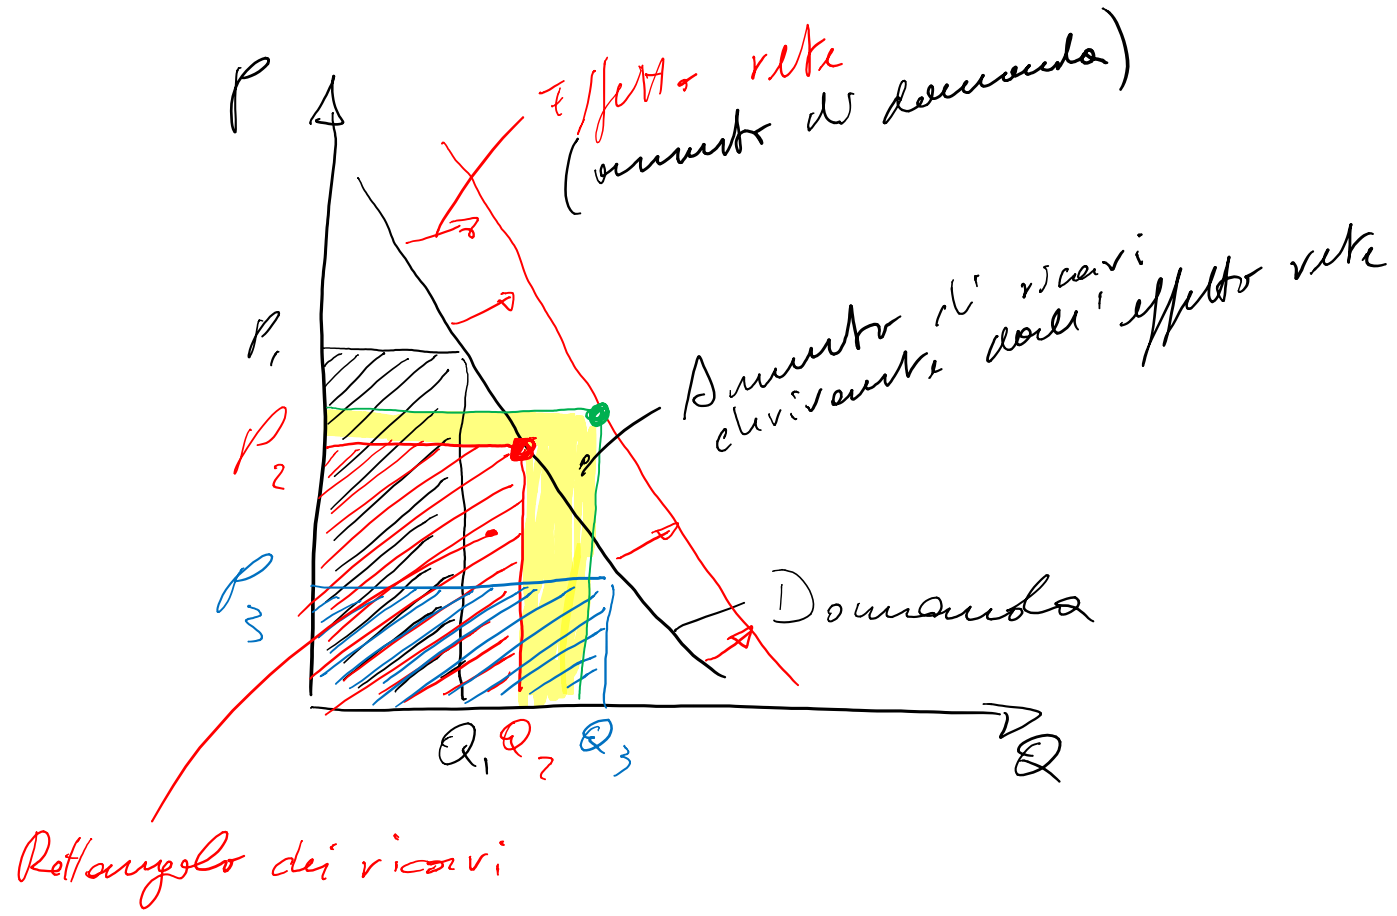 P
Effetto rete
(aumento di domanda)
Aumento di ricavi
derivante dall' effetto rete
P1
P2
P3
Domanda
Q1 Q2 Q3
Q
Rettangolo dei ricavi